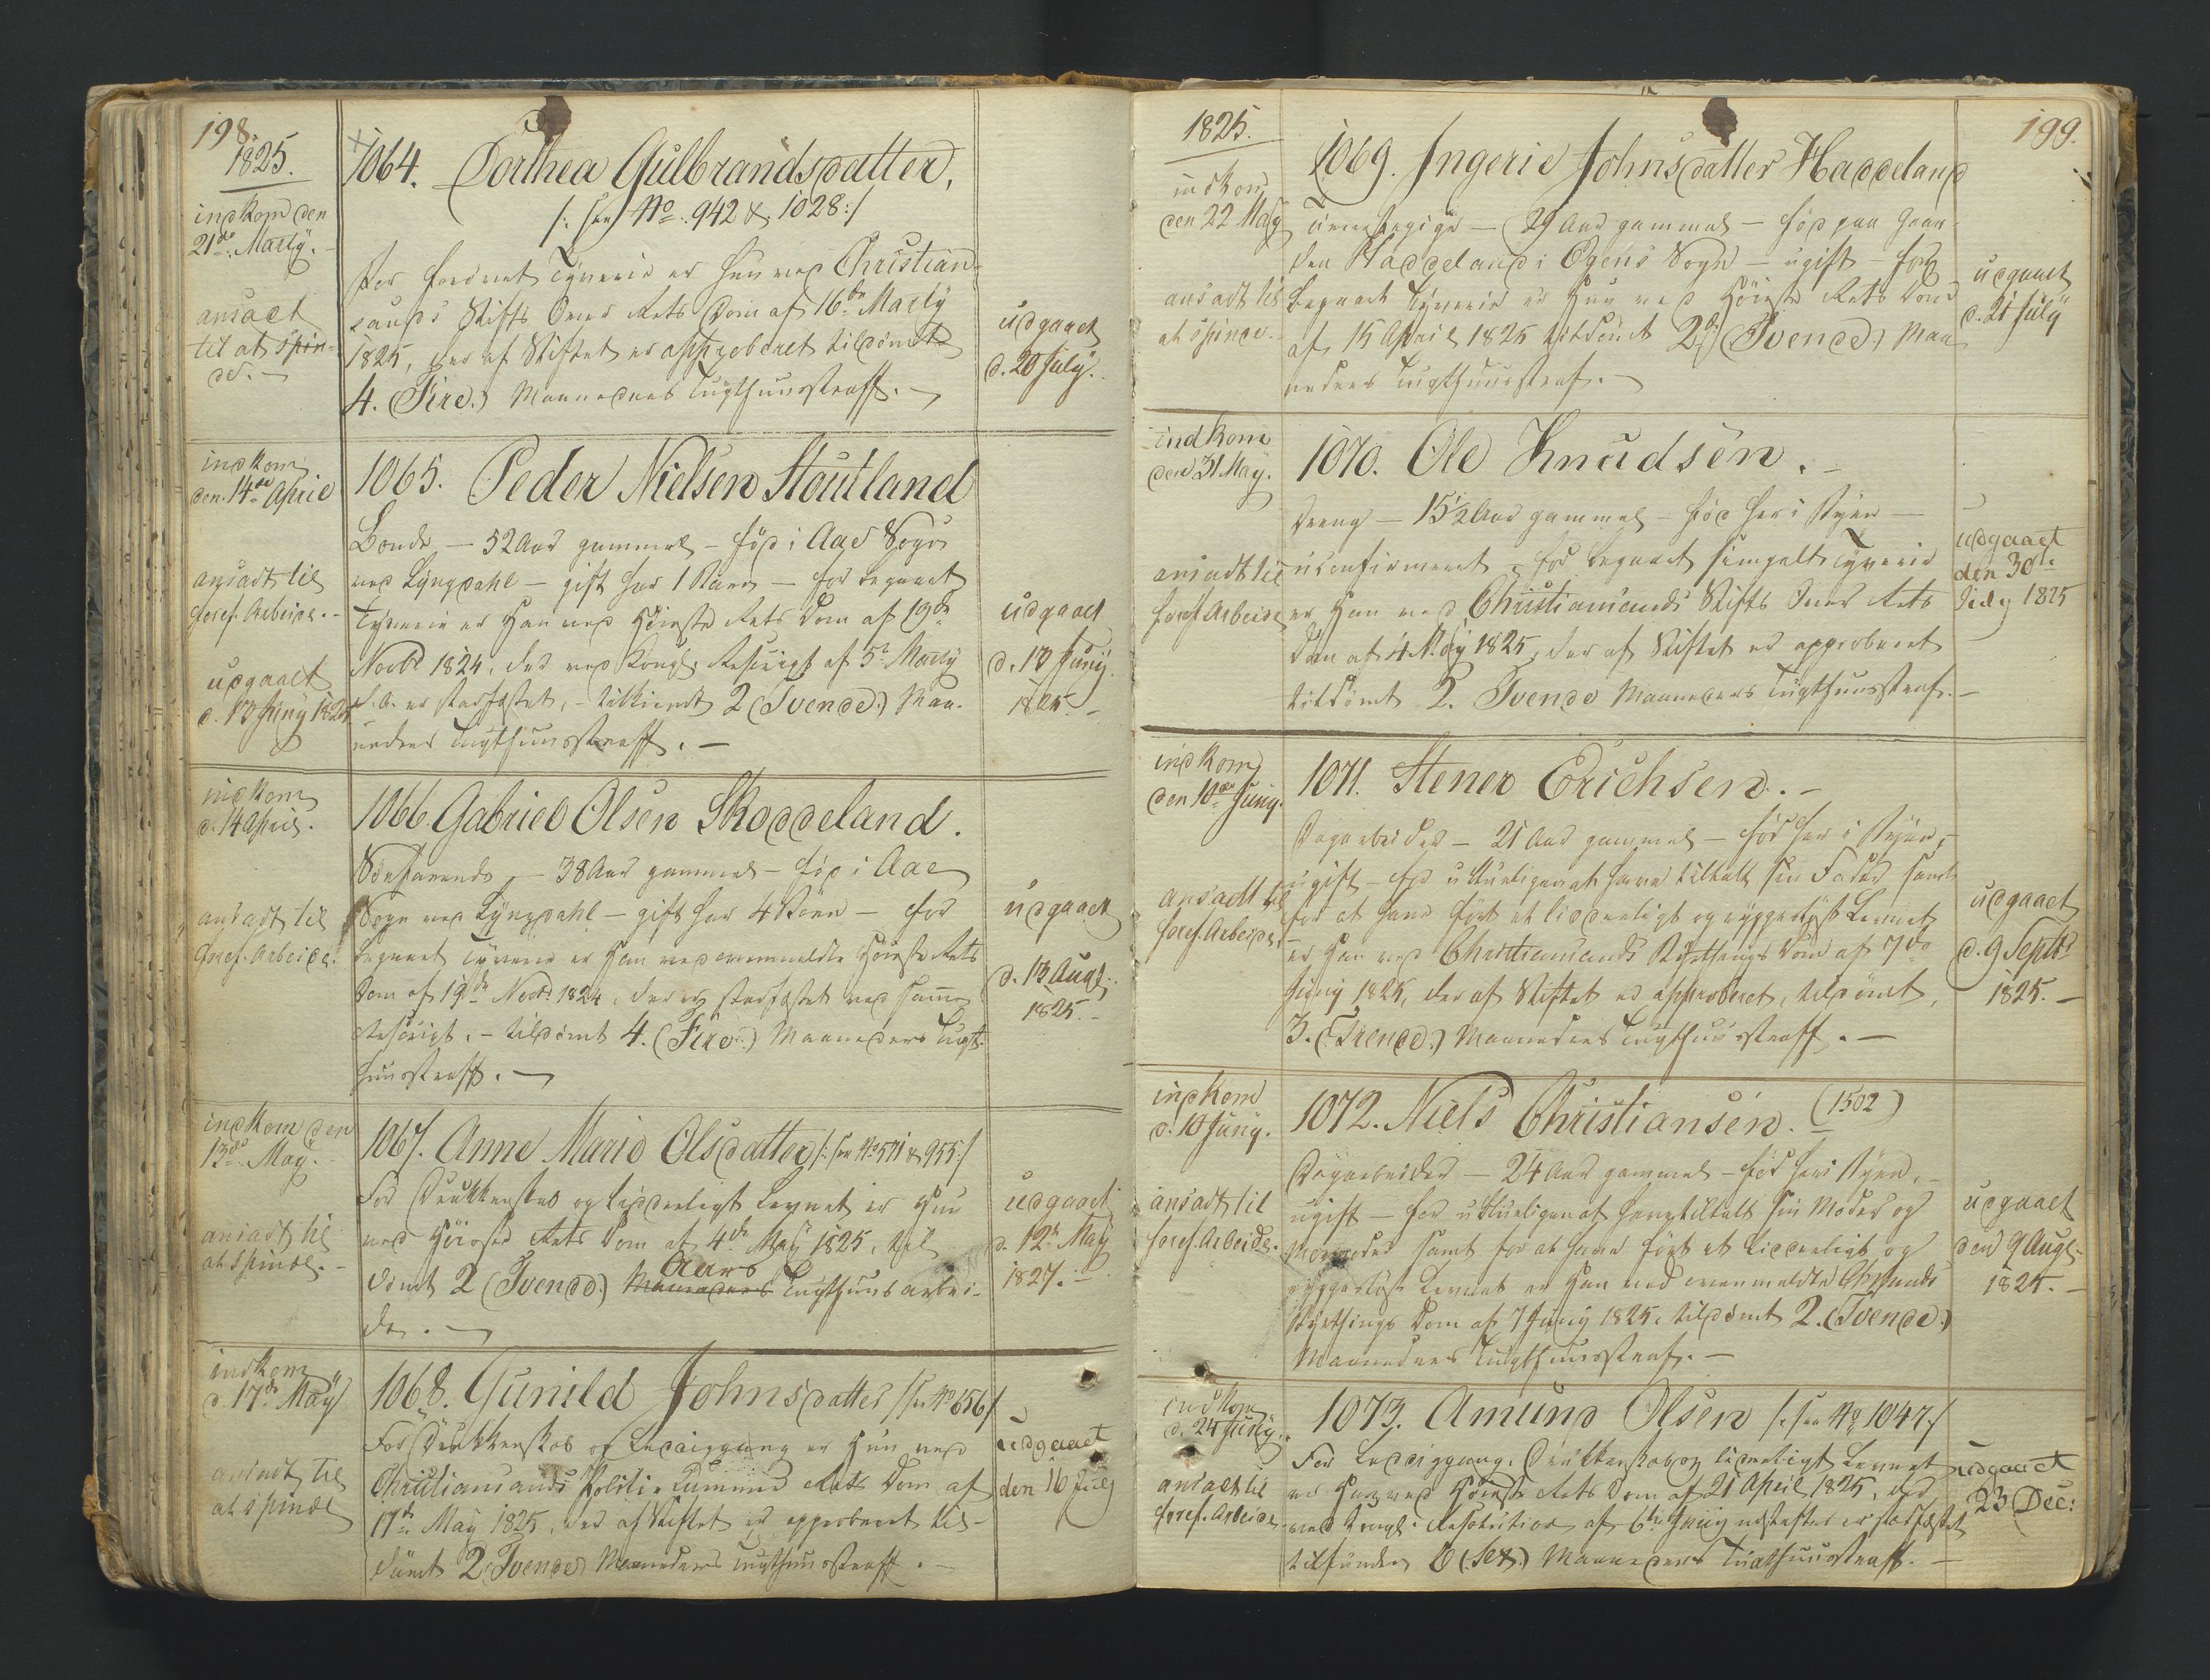 198.
1825.
indkom den
21de Martÿ.
ansaet
til at spin-
de.
1064. Dorthea Gulbrandsdatter,
/: see No. 942 & 1028:/
For tredie Tyverie er hun ved Christian-
sands Stifts Over Rets Dom af 16de Martÿ
1825, der af Stiftet er approberet tildömt
4. (Fire.) Maaneders Tugthuusstraff.
udgaaet
d. 20 July.
indkom
den 14de April
ansadt til
foref. Arbeide.
udgaaet
d. 13 Juny 1825
1065. Peder Nielsen Stoutland
Bonde — 52 Aar gammel – föd i Aae Sogn
ved Lyngdahl – gift har 1 Barn – for begaaet
Tyverie er Han ved Höieste Rets Dom af 19de
Novbr 1824, der ved Kongl. Rescript af 5te Martÿ
d. A. er stadfæstet, – tilkiendt 2 (Tvende.) Maa-
neders Tugthuusstraff.
udgaaet
d. 13 Juny
1825.
indkom
d. 14 April.
ansadt til
foref. Arbeide.
1066. Gabriel Olsen Skoddeland.
Söefarende, – 38 Aar gammel – föd i Aae
Sogn ved Lyngdahl – gift har 4 Börn – for
begaaet Tyverie er Han ved ovenmeldte Höieste Rets
Dom af 19de Novbr 1824, der er stadfæstet ved samme
Rescript, – tildömt 4. (Fire.) Maaneders Tugt-
huusstraff.
udgaaet
d. 13 Augt.
1825.
indkom den
13de May.
ansadt til
at spinde.
1067. Anne Marie Olsdatter /: see No 571 & 955:/
For Drukkenskab og liderligt Levnet er Hun
ved Höieste Rets Dom af 4de May 1825, til
Aars
dömt 2 (Tvende.) Maaneders Tugthuus arbei-
de.
udgaaet
d. 12te May
1827.
indkom
d. 17de May
ansadt til
at spinde
1068. Gunild Johnsdatter /: see No 656:/
For Drukkenskab og Lediggang er Hun ved
Christiansands Politie Kammer Rets Dom af
17de May 1825, der af Stiftet er approberet til-
dömt 2 (Tvende) Maaneders Tugthuusstraff.
udgaaet
den 16 July
1825.
199.
indkom
den 22 May
ansadt til
at spinde.
1069. Ingerie Johnsdatter Haddeland
Tienestepige – 29 Aar gammel – föd paa Gaar-
den Haddeland i Ögens Sogn – ugift – for
begaaet Tyverie er Hun ved Höieste Rets Dom
af 15 April 1825 tildömt 2 (Tvende.) Maa
neders Tugthuusstraf.
udgaaet
d. 21 July
indkom
den 31 May.
ansadt til
foref. Arbeide
1070. Ole Knudsen.
Dreng – 15½ Aar gammel – föd her i Byen –
uconfirmeret – for begaaet simpelt Tyverie
er Han ved Christiansands Stifts Over Rets
Dom af 4 May 1825, der af Stiftet er approberet
tildömt 2. Tvende Maaneders Tugthuusstraf.
udgaaet
den 30te
July 1825
indkom
den 10de Juny.
ansadt til
foref. Arbeide.
1071. Stener Erichsen.
Dagarbeider – 21 Aar gammel – föd her i Byen, –
ugift – for utilbørligen at have tiltalt sin Fader samt
for at have fört et liderligt og ryggeslöst Levnet
er Han ved Christiansands Byethings Dom af 7de
Juny 1825, der af Stiftet er approberet, tildömt
3. (Trende.) Maaneders Tugthuusstraff.
udgaaet
d. 9 Septbr
1825.
indkom
d. 10 Juny.
ansadt til
foref. Arbeide.
1072. Niels Christiansen. (1502)
Dagarbeider – 24 Aar gammel – föd her i Byen, –
ugift – for utilbørligen at have tiltalt sin Moder og
samt for at have fört et liderligt og
ryggeslöst Levnet er Han ved ovenmeldte Chrsands
Byethings Dom af 7 Juny 1825, tildömt 2. (Tvende.)
Maaneders Tugthuusstraf.
udgaaet
den 9 Augt.
1825.
indkom
d. 24 Juny.
ansaet til
foref. Arbeide
1073. Amund Olsen /: see No 1047:/
For Lediggang, Drukkenskab og liderligt Levnet
er Han ved Höieste Rets Dom af 21 April 1825, der
ved Kongl. Resolution af 6te Juny næstefter er stadfæstet
tilfunden 6 (Sex.) Maaneders Tugthuusstraff.
udgaaet
23 Dec: